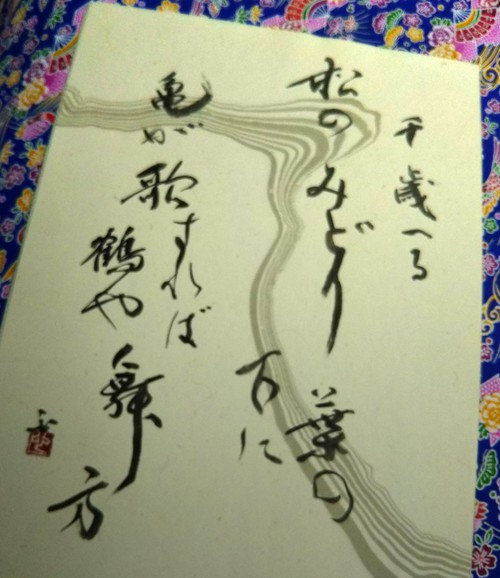 千歳へる
松のみどり葉の
下に
亀が歌すれば
鶴や舞方